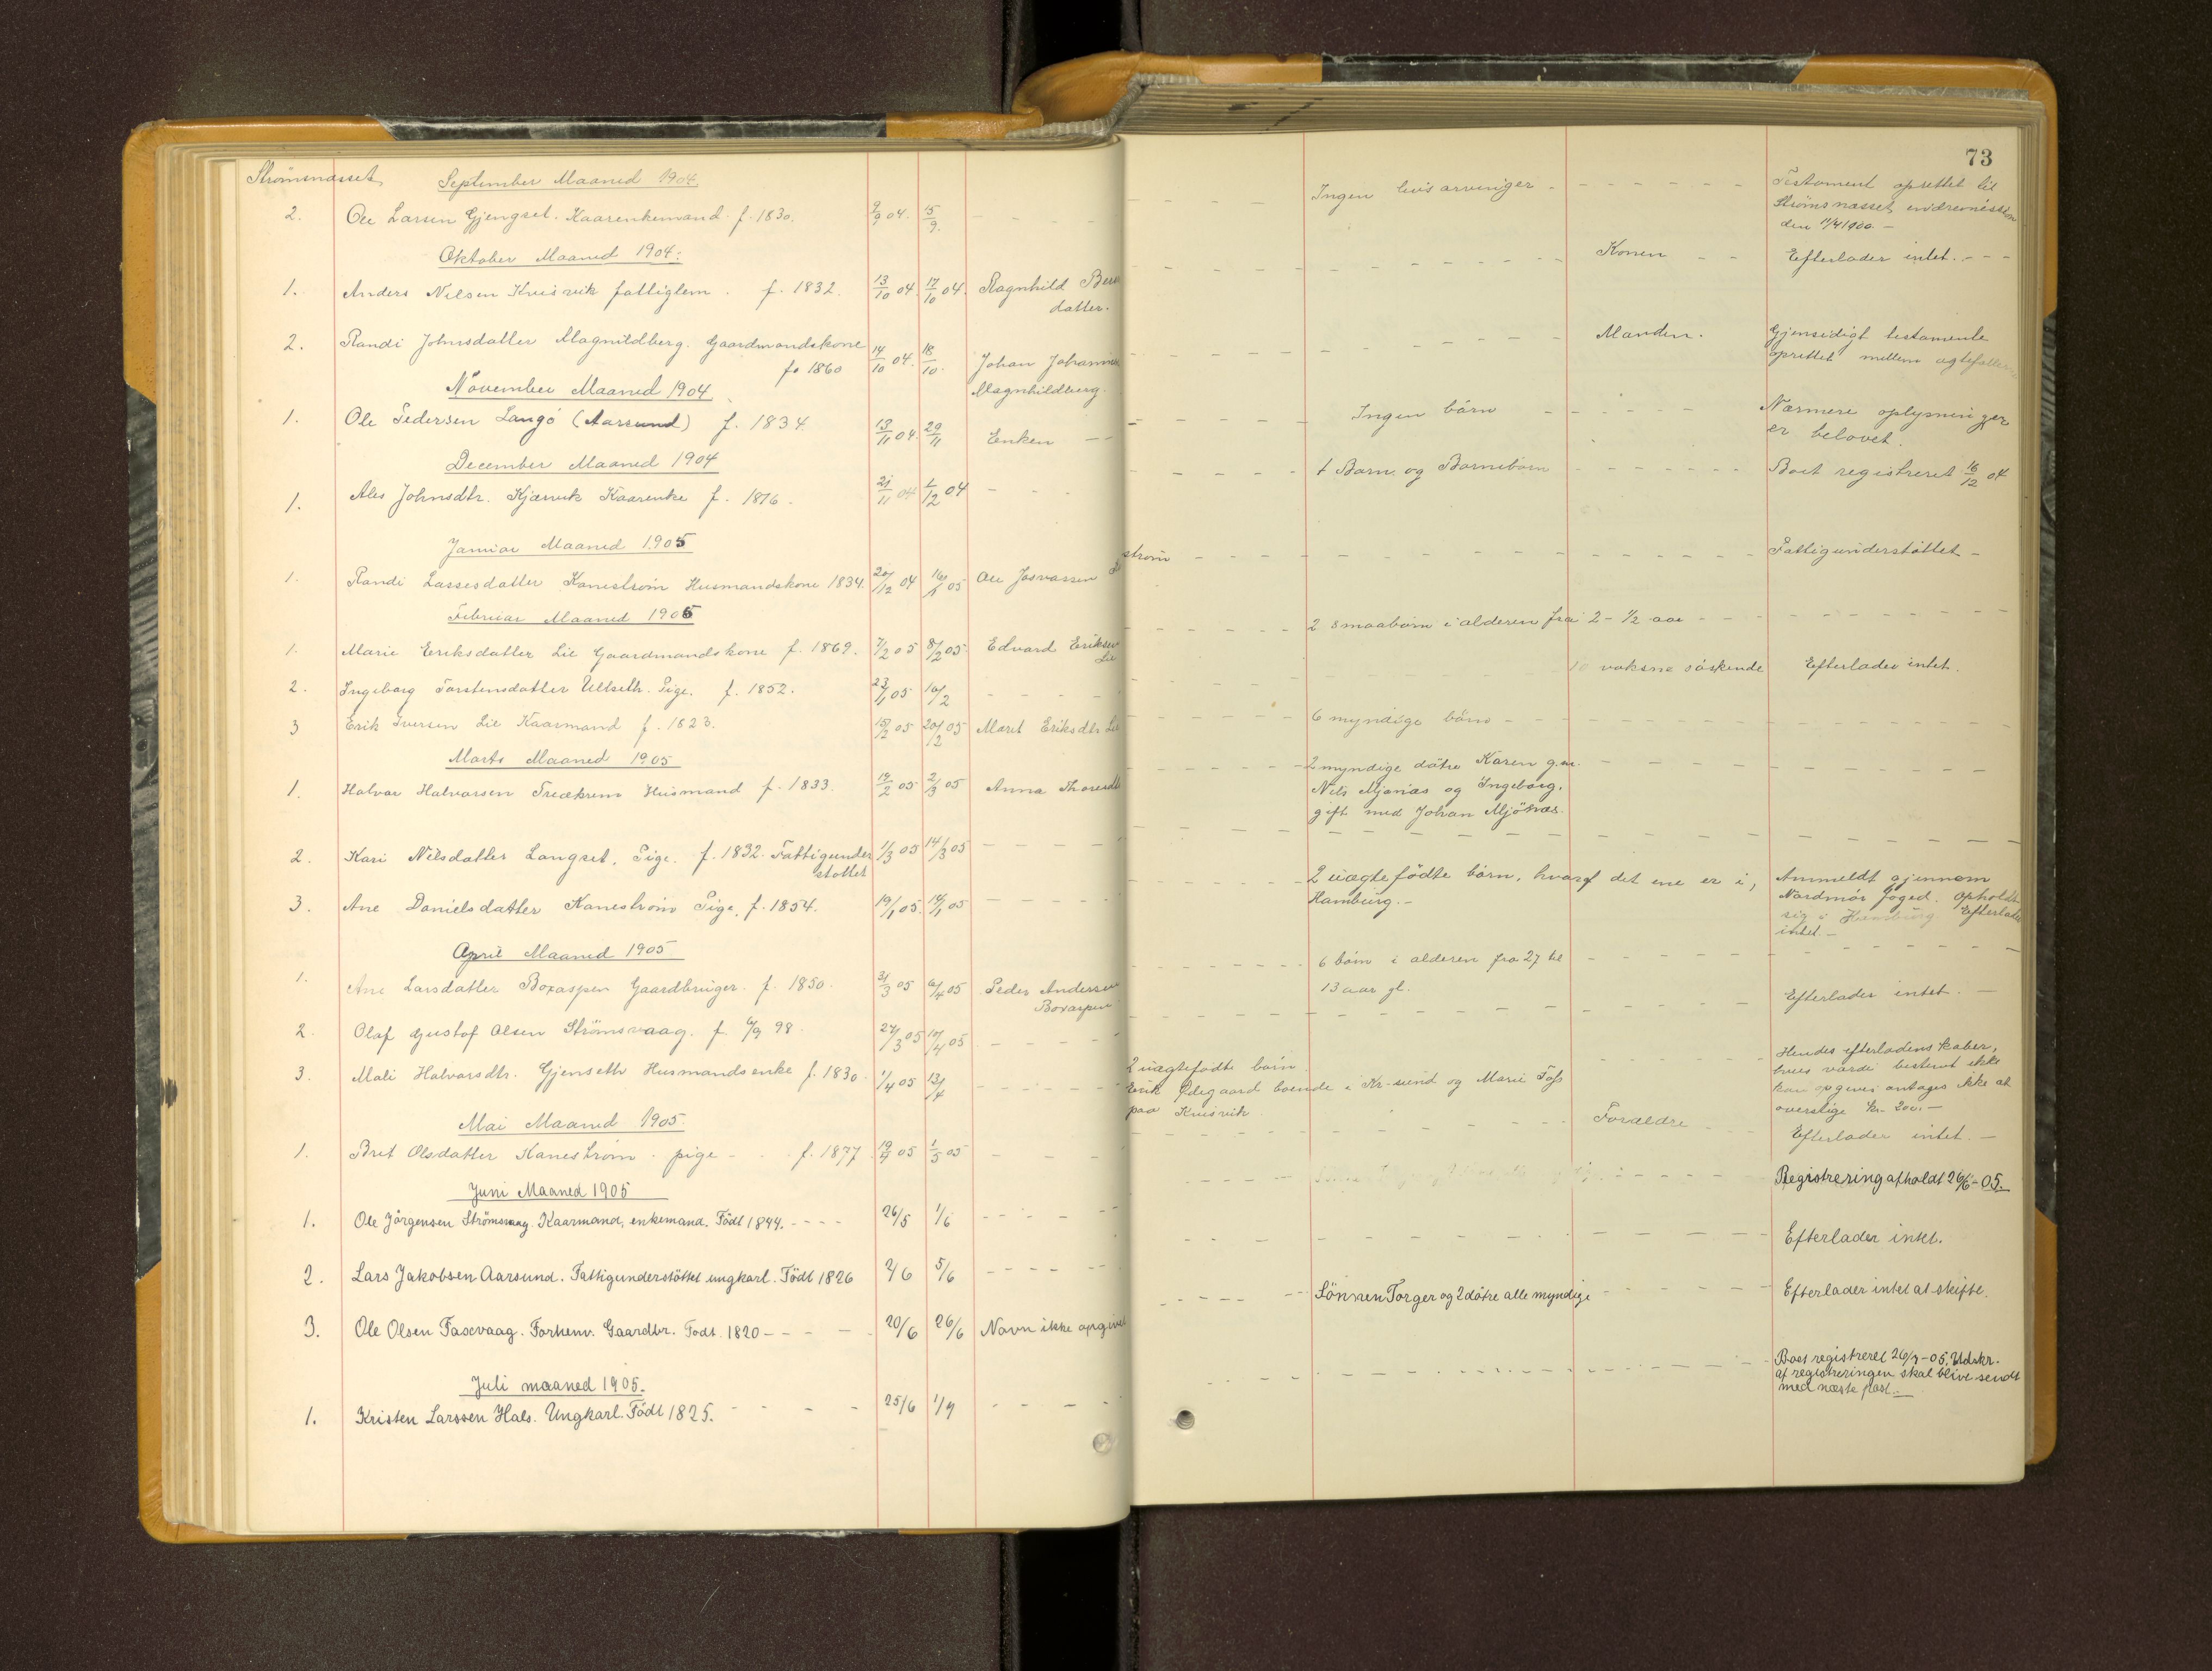 73
Strömsnæsset
September Maaned 1904.
2. Ole Larsen Gjengset. Kaarenkemand f. 1830. 9/9 04. 15/9.
Ingen livsarvinger - Testament oprettet til
Strömsnæsset indremission
den 11/4 1900 -
Oktober Maaned 1904:
1. Anders Nilsen Kvisvik fattiglem. f. 1832. 13/10 04. 17/10 04. Ragnhild
datter.
Konen - - Efterlader intet. - - -
2. Randi Johnsdatter Magnildberg. Gaardmandskone
f. 1860 14/10 04. 18/10. Johan
Magnhildberg.
Manden. Gjensidigt testamente
oprettet mellem
November Maaned 1904
1. Ole Pedersen Langö (Aarsund) f. 1834 13/11 04. 29/11 Enken - -
Ingen börn Nærmere oplysninger
er belovet.
December Maaned 1904
1. Ales Johnsdtr. Kjærvik Kaarenke f. 1816. 21/11 04 1/12 04
1 Barn og Barnebörn Boet registreret 16/12 04
Januar Maaned 1905
1. Randi Lassesdatter Kaneström Husmandskone 1834. 20/12 04 16/1 05 Ole
ström
Fattigunderstöttet -
Februar Maaned 1905
1. Marie Eriksdatter Lie Gaardmandskone f. 1869. 7/2 05 8/2 05 Edvard Eriksen
Lie
2 smaabörn i alderen fra 2 - 1/2 aar
2. Ingeborg Torstensdatter Ullseth. Pige. f. 1852. 23/1 05 10/2
10 voksne söskende Efterlader intet.
3 Erik Iversen Lie Kaarmand f. 1823. 15/2 05 20/2 05 Marit Eriksdtr Lie
6 myndige börn -
Marts Maaned 1905
1. Halvar Halvarsen Husmand f. 1833. 19/2 05 2/3 05 Anna
2 myndige dötre Karen g.m.
Nils og Ingeborg,
gift med Johan
2. Kari Nilsdatter Langset, Pige. f. 1832. Fattigunder
stöttet 1/3 05 14/3 05
3. Ane Danielsdatter Kaneström Pige, f. 1854. 19/1 05. 05
2 uægtefödte börn, hvoraf det ene er i,
Hamburg. -
Anmeldt gjennem
Nordmör foged. Opholdt
sig i Hamburg Efterlader
intet. -
April Maaned 1905
1. Ane Larsdatter Boxaspen Gaardbruger. f. 1850. 31/3 05 6/4 05 Peder Andersen
Boxaspen
6 börn i alderen fra 27 til
13 aar gl.
2. Olaf Gustof Olsen Strömsvaag. f. 6/9 98. 27/3 05 10/4 05
Efterlader intet. -
3. Mali Halvarsdtr. Gjenseth Husmandsenke f. 1830. 1/4 05 13/4
2 uægtefödte börn
Erik Ödegaard boende i Kr-sund og Marie
paa Kvisvik.
Hendes efterladenskaber,
hvis værdi bestemt ikke
kan opgives antages ikke at
overstige Kr. 200. -
Mai Maaned 1905.
1. Brit Olsdatter Kaneström. pige - . . f. 1877. 19/4 05 1/5 05
Forældre Efterlader intet. -
Juni Maaned 1905
1. Ole Jörgensen Strömsvaag. Kaarmand, enkemand. Födt 1844. - - - - 26/5 1/6
Registrering afholdt 26/6 - 05.
2. Lars Jakobsen Aarsund. Fattigunderstöttet ungkarl. Födt 1826 2/6 5/6
Efterlader intet.
3. Ole Olsen Faxvaag. Forhenv. Gaardbr. Födt. 1820 - - - - 20/6 26/6 Navn ikke opgivet
Sönnen Torger og 2 dötre alle myndige
Efterlader intet at skifte.
Juli maaned 1905.
1. Kristen Larssen Hals. Ungkarl. Födt 1825. 25/6 1/7
Boet registreret 26/7 - 05. Udskr.
af registreringen skal blive sendt
med næste post. -